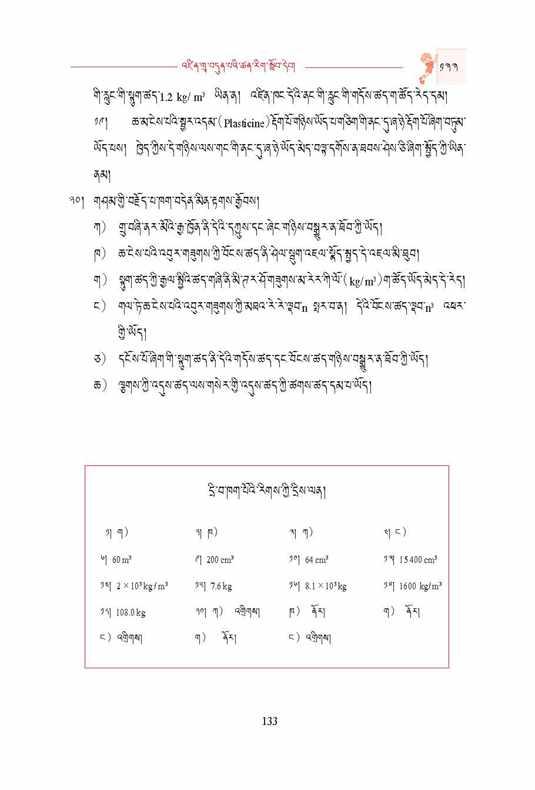 འཛིན་གྲྭ་བདུན་པའི་ཚན་རིག་སློབ་དེབ།
༡༣༣
གི་རླུང་གི་སྟུག་ཚད་1.2 kg/ m³ ཡིན་ན། འཛིན་ཁང་དེའི་ནང་གི་རླུང་གི་གདོས་ཚད་ག་ཚོད་རེད་དམ།
༡༩། ཆ་མ་ངེས་པའི་སྦྱར་འདམ་(Plasticine)རྡོག་པོ་གཉིས་ཡོད་པ་གཅིག་གི་ནང་དུ་ཞ་ཉེ་རྡོག་པོ་ཞིག་བཏུམ་
ཡོད་པས། ཁྱེད་ཀྱིས་དེ་གཉིས་ལས་གང་གི་ནང་དུ་ཞ་ཉེ་ཡོད་མེད་བལྟ་དགོས་ན་ཐབས་ཤེས་ཅི་ཞིག་སྤྱོད་ཀྱི་ཡིན་
ནམ།
༢༠། གཤམ་གྱི་བརྗོད་པ་ཁག་བདེན་མིན་རྟགས་རྒྱོབས།
ཀ) གྲུ་བཞི་ནར་མོའི་རྒྱ་ཁྱོན་ནི་དེའི་དཀྱུས་དང་ཞེང་གཉིས་བསྒྱུར་ན་ཐོབ་ཀྱི་ཡོད།
ཁ) ཆ་ངེས་པའི་འབུར་གཟུགས་ཀྱི་བོངས་ཚད་ནི་ཤེལ་སྦུག་འཇལ་སྣོད་སྤྱད་དེ་འཇལ་མི་ཐུབ།
ག) སྟུག་ཚད་ཀྱི་རྒྱལ་སྤྱིའི་ཚད་གཞི་ནི་མི་ཊར་ཤོ་གཟུགས་མ་རེར་ཀི་ལོ་(kg/m³)ག་ཚོད་ཡོད་མེད་དེ་རེད།
ང) གལ་ཏེ་ཆ་ངེས་པའི་འབུར་གཟུགས་ཀྱི་མཐའ་རེ་རེ་ལྡབ་n སྤར་བ་ན། དེའི་བོངས་ཚད་ལྡབ་n³ འཕར་
གྱི་ཡོད།
ཅ) དངོས་པོ་ཞིག་གི་སྟུག་ཚད་ནི་དེའི་གདོས་ཚད་དང་བོངས་ཚད་གཉིས་བསྒྱུར་ན་ཐོབ་ཀྱི་ཡོད།
ཆ) ལྕགས་ཀྱི་འདུས་ཚད་ལས་གསེར་གྱི་འདུས་ཚད་ཀྱི་ཚགས་ཚད་དམ་པ་ཡོད།
དྲི་བ་ཁག་པོའི་རིགས་ཀྱི་དྲིས་ལན།
༡། ཀ) ༢། ཁ) ༣། ཀ) ༤། ང)
༥། 60 m³ ༩། 200 cm³ ༡༠། 64 cm³ ༡༣། 15400 cm³
༡༤། 2 × 10³ kg / m³ ༡༥། 7.6 kg ༡༦། 8.1 × 10³ kg 1600 kg/m³
108.0 kg ༢༠། ཀ) འགྲིགས། ཁ) ནོར། ག) ནོར།
ང) འགྲིགས། ནོར། འགྲིགས།
133